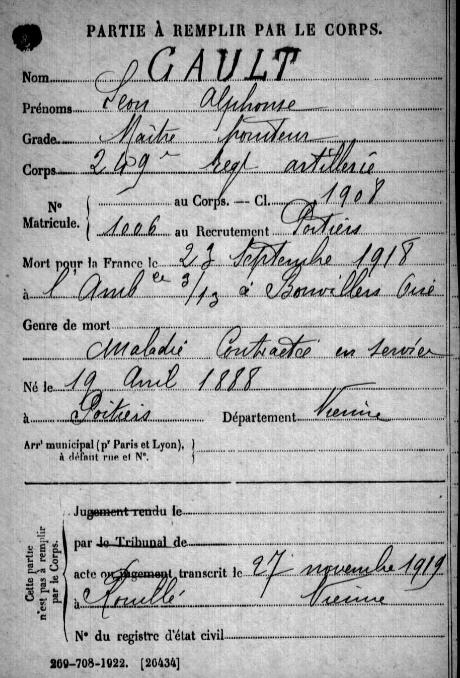 PARTIE À REMPLIR PAR LE CORPS.
Nom GAULT
Prénoms Léon Alphonse
Grade Maître pointeur
Corps 249e regt artillerie
N° Matricule. { au Corps. — Cl. 1908
1006 au Recrutement Poitiers
Mort pour la France le 23 Septembre 1918
à l'Ambce 3/13 à Bonvillers Oise
Genre de mort
Maladie Contractée en service
Né le 19 Avril 1888
à Poitiers Département Vienne
Arrt municipal (pr Paris et Lyon), }
à défaut rue et N°.
Cette partie n'est pas à remplir par le Corps.
Jugement rendu le
par le Tribunal de
acte ou jugement transcrit le 27 novembre 1919
à Rouillé Vienne
N° du registre d'état civil
269-708-1922. [26434]